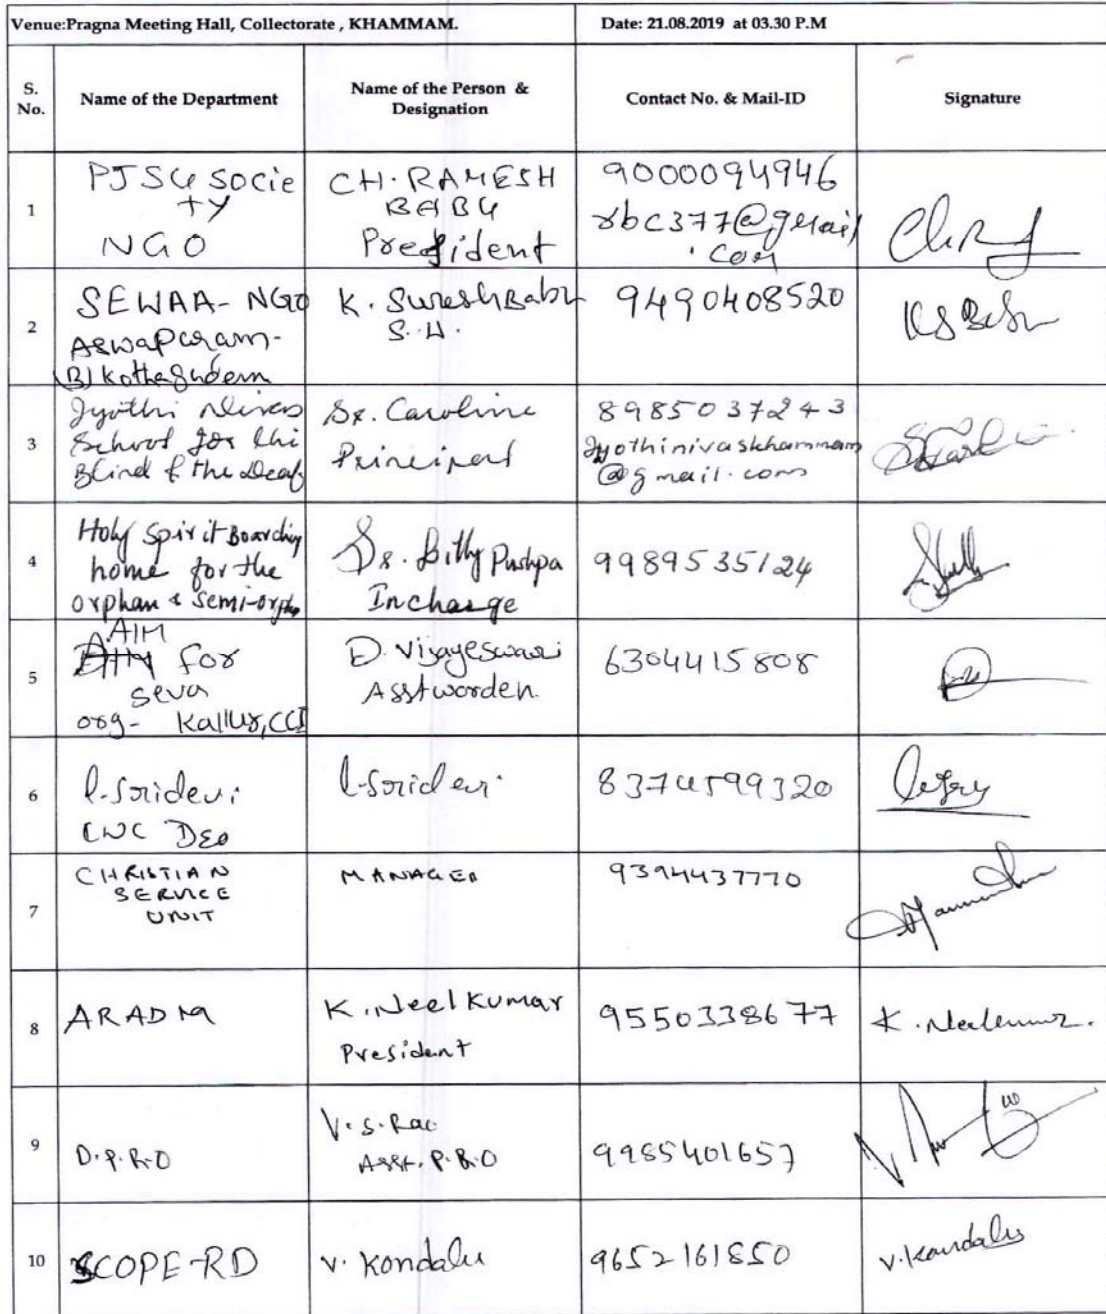 Venue:Pragna Meeting Hall, Collectorate , KHAMMAM. Date: 21.08.2019 at 03.30 P.M
S. No. Name of the Department Name of the Person & Designation Contact No. & Mail-ID Signature
1
PJSU Socie
ty
NGO
CH. RAMESH
BABU
President
9000094946
rbc377@gmail
.com
2
SEWAA- NGO
Aswaparam-
(B) Kothagudem
K. SureshBabu
9490408520
KSBabu
3
Jyothi Nivas
School for the
Blind & the Deaf
Sr. Caroline
Principal
8985037243
Jyothinivaskhammam
@gmail.com
4
Holy Spirit Boarding
home for the
orphan & semi-orphan
Sr. Billy Pushpa
Incharge
9989535124
5
AIM
for
seva
org- Kallur, CCI
D. Vijayeswari
Asst worden.
6304415808
6
l-Sridevi
CWC DEO
l-Sridevi
8374599320
7
CHRISTIAN
SERVICE
UNIT
MANAGER
9394437770
8
ARADNA
K. Neel Kumar
President
9550338677
9
D.P.R.O
V.S.Rao
Asst. P.R.O
9985401657
10
SCOPE-RD
V. Kondalu
9652161850
V. Kondalu